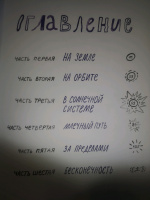 ОГЛАВЛЕНИЕ
ЧАСТЬ ПЕРВАЯ НА ЗЕМЛЕ
ЧАСТЬ ВТОРАЯ НА ОРБИТЕ
ЧАСТЬ ТРЕТЬЯ В СОЛНЕЧНОЙ
СИСТЕМЕ
ЧАСТЬ ЧЕТВЕРТАЯ МЛЕЧНЫЙ ПУТЬ
ЧАСТЬ ПЯТАЯ ЗА ПРЕДЕЛАМИ
ЧАСТЬ ШЕСТАЯ БЕСКОНЕЧНОСТЬ